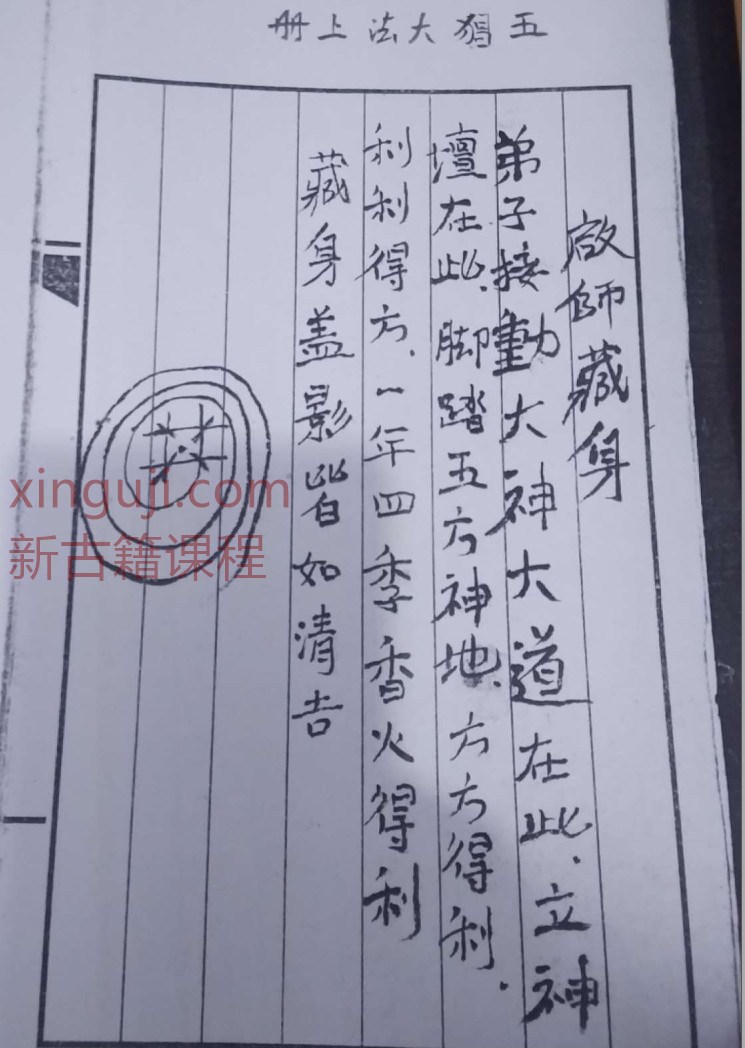 五猖大法上册
啟師藏身
弟子接動大神大道在此、立神
壇在此、脚踏五方神地、方方得利、
利利得方、一年四季香火得利
藏身盖影皆如清吉
xinguji.com
新古籍课程